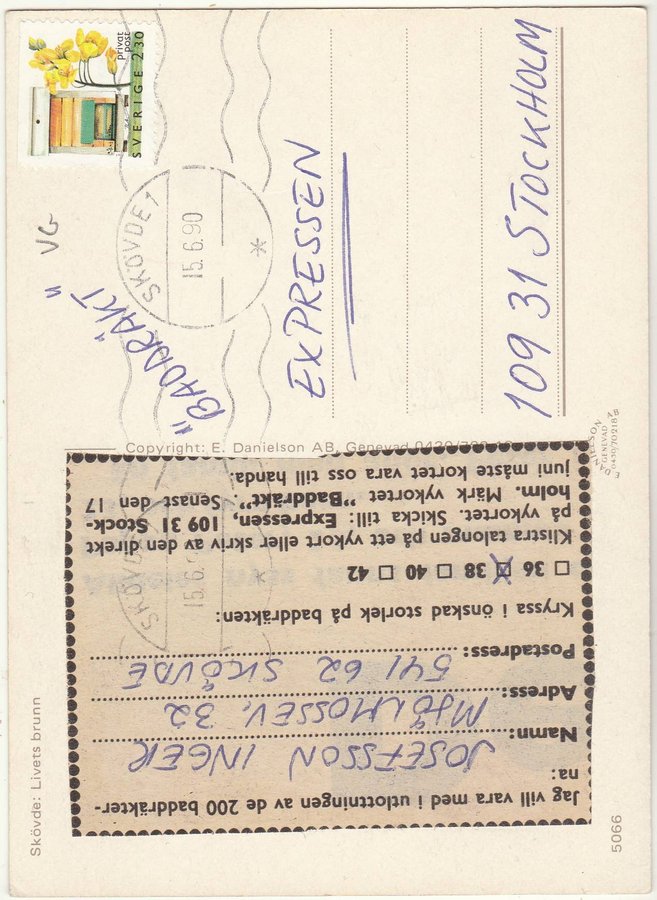 SVERIGE 2.30
privat
post
SKÖVDE 1
15.6.90
VG
"BADDRÄKT"
EXPRESSEN
109 31 STOCKHOLM
Copyright: E. Danielson AB, Genevad
E. DANIELSON
GENEVAD
Jag vill vara med i utlottningen av de 200 baddräkter-
na:
Namn: JOSEFSSON INGER
Adress: MJÖLMOSSEV. 32
Postadress: 541 62 SKÖVDE
Kryssa i önskad storlek på baddräkten:
□ 36 ☒ 38 □ 40 □ 42
Klistra talongen på ett vykort eller skriv av den direkt
på vykortet. Skicka till: Expressen, 109 31 Stock-
holm. Märk vykortet "Baddräkt". Senast den 17
juni måste kortet vara oss till handa.
SKÖVDE
15.6.
Skövde: Livets brunn
5066